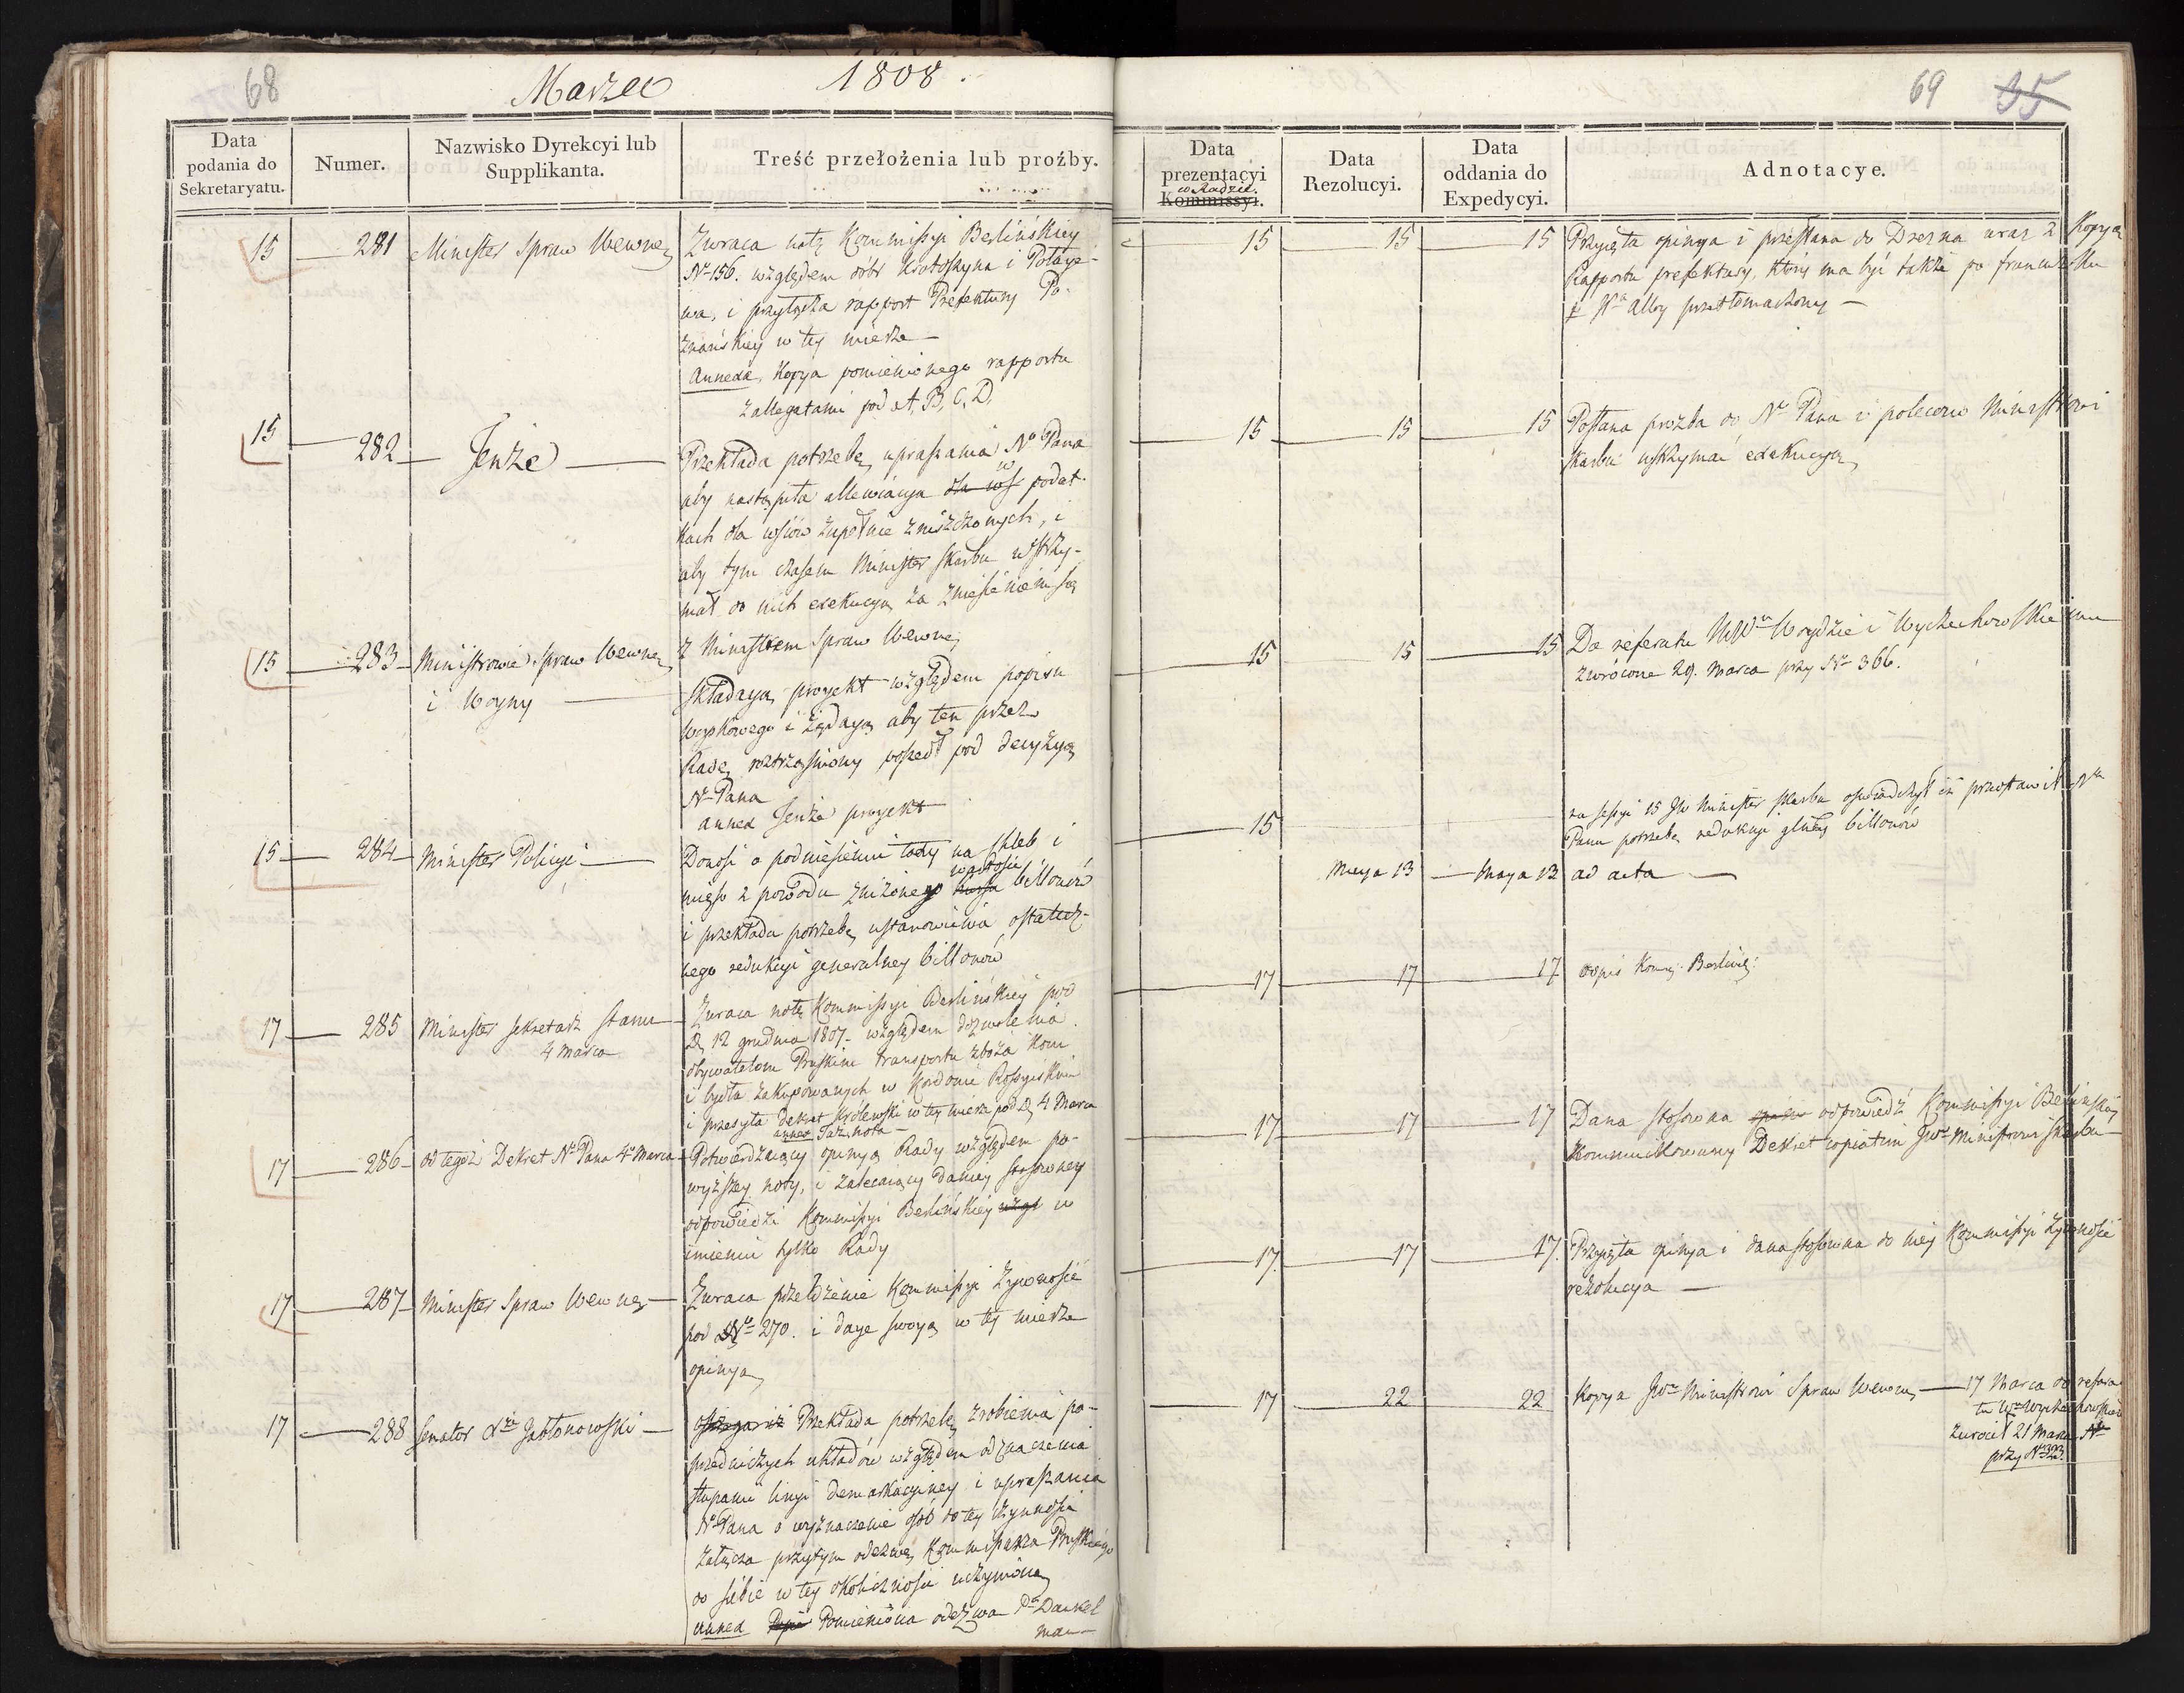 68
Marzec 1808
Data podania do Sekretaryatu.
Numer.
Nazwisko Dyrekcyi lub Supplikanta.
Treść przełożenia lub proźby.
15 281 Minister Spraw Wewnę
Zwraca notę Kommissyi Berlińskiey
Nr 156. względem dóbr Krotoszyna i
wa, i przyłącza rapport Prefektury Po-
znańskiey w tey mierze
Annexa, Kopya pomienionego rapportu
z allegatami pod A, B, C, D.
15 282 Tenże
Przekłada potrzebę upraszania No Pana
aby nastąpiła allewiacya w podat-
kach dla wsiów zupełnie zniszczonych, i
aby tym czasem Minister Skarbu wstrzy-
mał do nich exekucyą za zniesieniem się
z Ministrem Spraw Wewnę
15 283 Ministrowie Spraw Wewnę
i Woyny
Składaią proyekt względem popisu
woyskowego i żądaią aby ten przez
Radę roztrząśniony poszedł pod decyzyą
No Pana
annex Tenże proyekt
15 284 Minister Policyi
Donosi o podniesieniu taxy na chleb i
mięso z powodu zniżonego wartości billonów
i przekłada potrzebę ustanowienia ostatecz-
nego redukcyi generalney billonów
17 285 Minister Sekretarz Stanu
4 Marca
Zwraca notę Kommissyi Berlińskiey pod
D. 12 grudnia 1807. względem dozwolenia
obywatelom Pruskim transportu zboża koni
i bydła zakupowanych w Kordonie Rossyiskim
i przesyła dekret Królewski w tey mierze pod D. 4 Marca
annex Taż nota
17 286 od tegoż Dekret No Pana 4o Marca
Potwierdzaiący opinyą Rady względem po-
wyższey noty, i zalecaiący daniey stosowney
odpowiedzi Kommissyi Berlińskiey w
imieniu tylko Rady
17 287 Minister Spraw Wewnę
Zwraca przełożenie Kommissyi Żywności
pod No 270. i daye swoyą w tey mierze
opinyą
17 288 Senator Jabłonowski
Przekłada potrzebę zrobienia po-
przedniczych układów względem odznaczenia
słupami linyi demarkacyiney i upraszania
No Pana o wyznaczenie osób do tey czynności
załącza przytym odezwę Kommissarza Pruskiego
do siebie w tey okoliczności uczynioną
annex Pomieniona odezwa Pa Dankel
man
69 35
Data prezentacyi w Radzie. Kommissyi.
Data Rezolucyi.
Data oddania do Expedycyi.
Adnotacye.
15 15 15 Przyięta opinya i przesłana do Drezna wraz z Kopyą
Rapportu prefektury, który ma być także po francuzku
przetłomaczony
15 15 15 Posłana prozba do No Pana i polecono Ministrowi
Skarbu wstrzymać exekucyą
15 15 15 Do referatu Woydzie i Wyczechowskiemu
zwrócone 29. Marca przy No 366.
15
na sessyi 15 JW Minister Skarbu oświadczył iż przedstawił No
Panu potrzebę redukcyi billonów
Maya 13 Maya 13 ad acta
17 17 17 odpis Komiss. Berliński:
17 17 17 Dana stosowna odpowiedź Kommissyi Berlińskiey
Kommunikowany Dekret copiatim JWu Ministrowi Skarbu
17 17 17. Przyięta opinya i dana stosowna do niey Kommissyi Żywności
rezolucya
17 22 22 Kopya JWu Ministrowi Spraw Wewnę 17 Marca do refera
tu Wo Wyczechowskie
zwrócił 21 Marca
przy No 323.